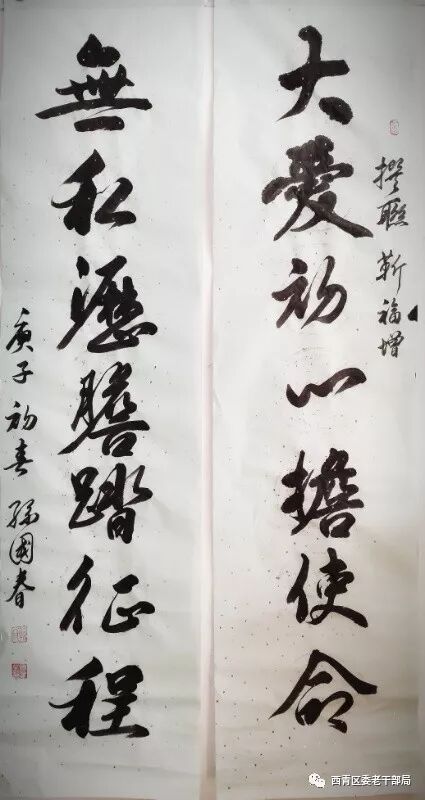 大愛初心擔使命
撰聯 靳福增
無私瀝膽踏征程
庚子初春 孫國春
西青区委老干部局